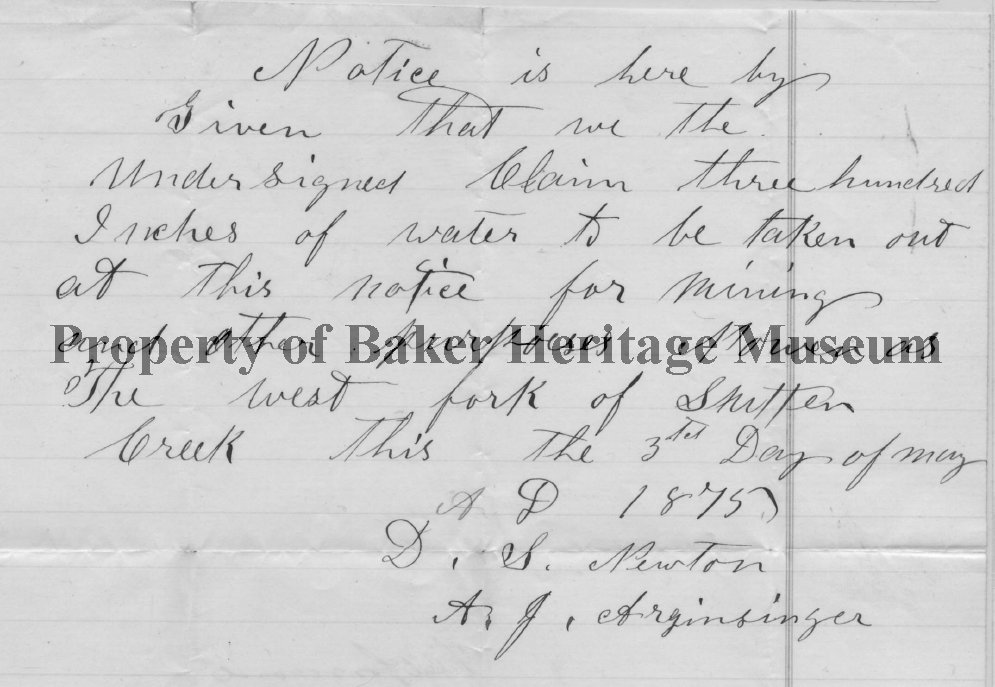 Notice is here by
Given that we the
Undersigned Claim three hundred
Inches of water to be taken out
at this notice for mining
and other purposes as
Property of Baker Heritage Museum
of The west fork of
Creek this the 3td Day of may
A D 1875
D. S. Newton
A. J. Arginsinger